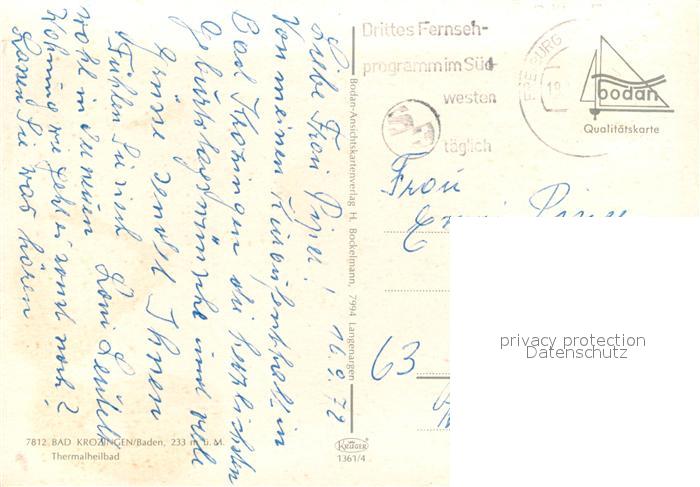 Liebe Frau Piper! 16.9.72
Von meinem Kuraufenthalt in
Bad Krozingen die herzlichsten
Geburtstagswünsche und viele
Grüsse sendet Ihnen
Loni
Fühlen Sie sich
wohl in der neuen
Wohnung wie geht es sonst noch?
Lassen Sie was hören
Bodan-Ansichtskartenverlag H. Bockelmann, 7994 Langenargen
Drittes Fernseh-
programm im Süd-
westen
täglich
FREIBURG
19
bodan
Qualitätskarte
Frau
63
privacy protection
Datenschutz
7812 BAD KROZINGEN/Baden, 233 m ü. M.
Thermalheilbad
KRÜGER
1361/4